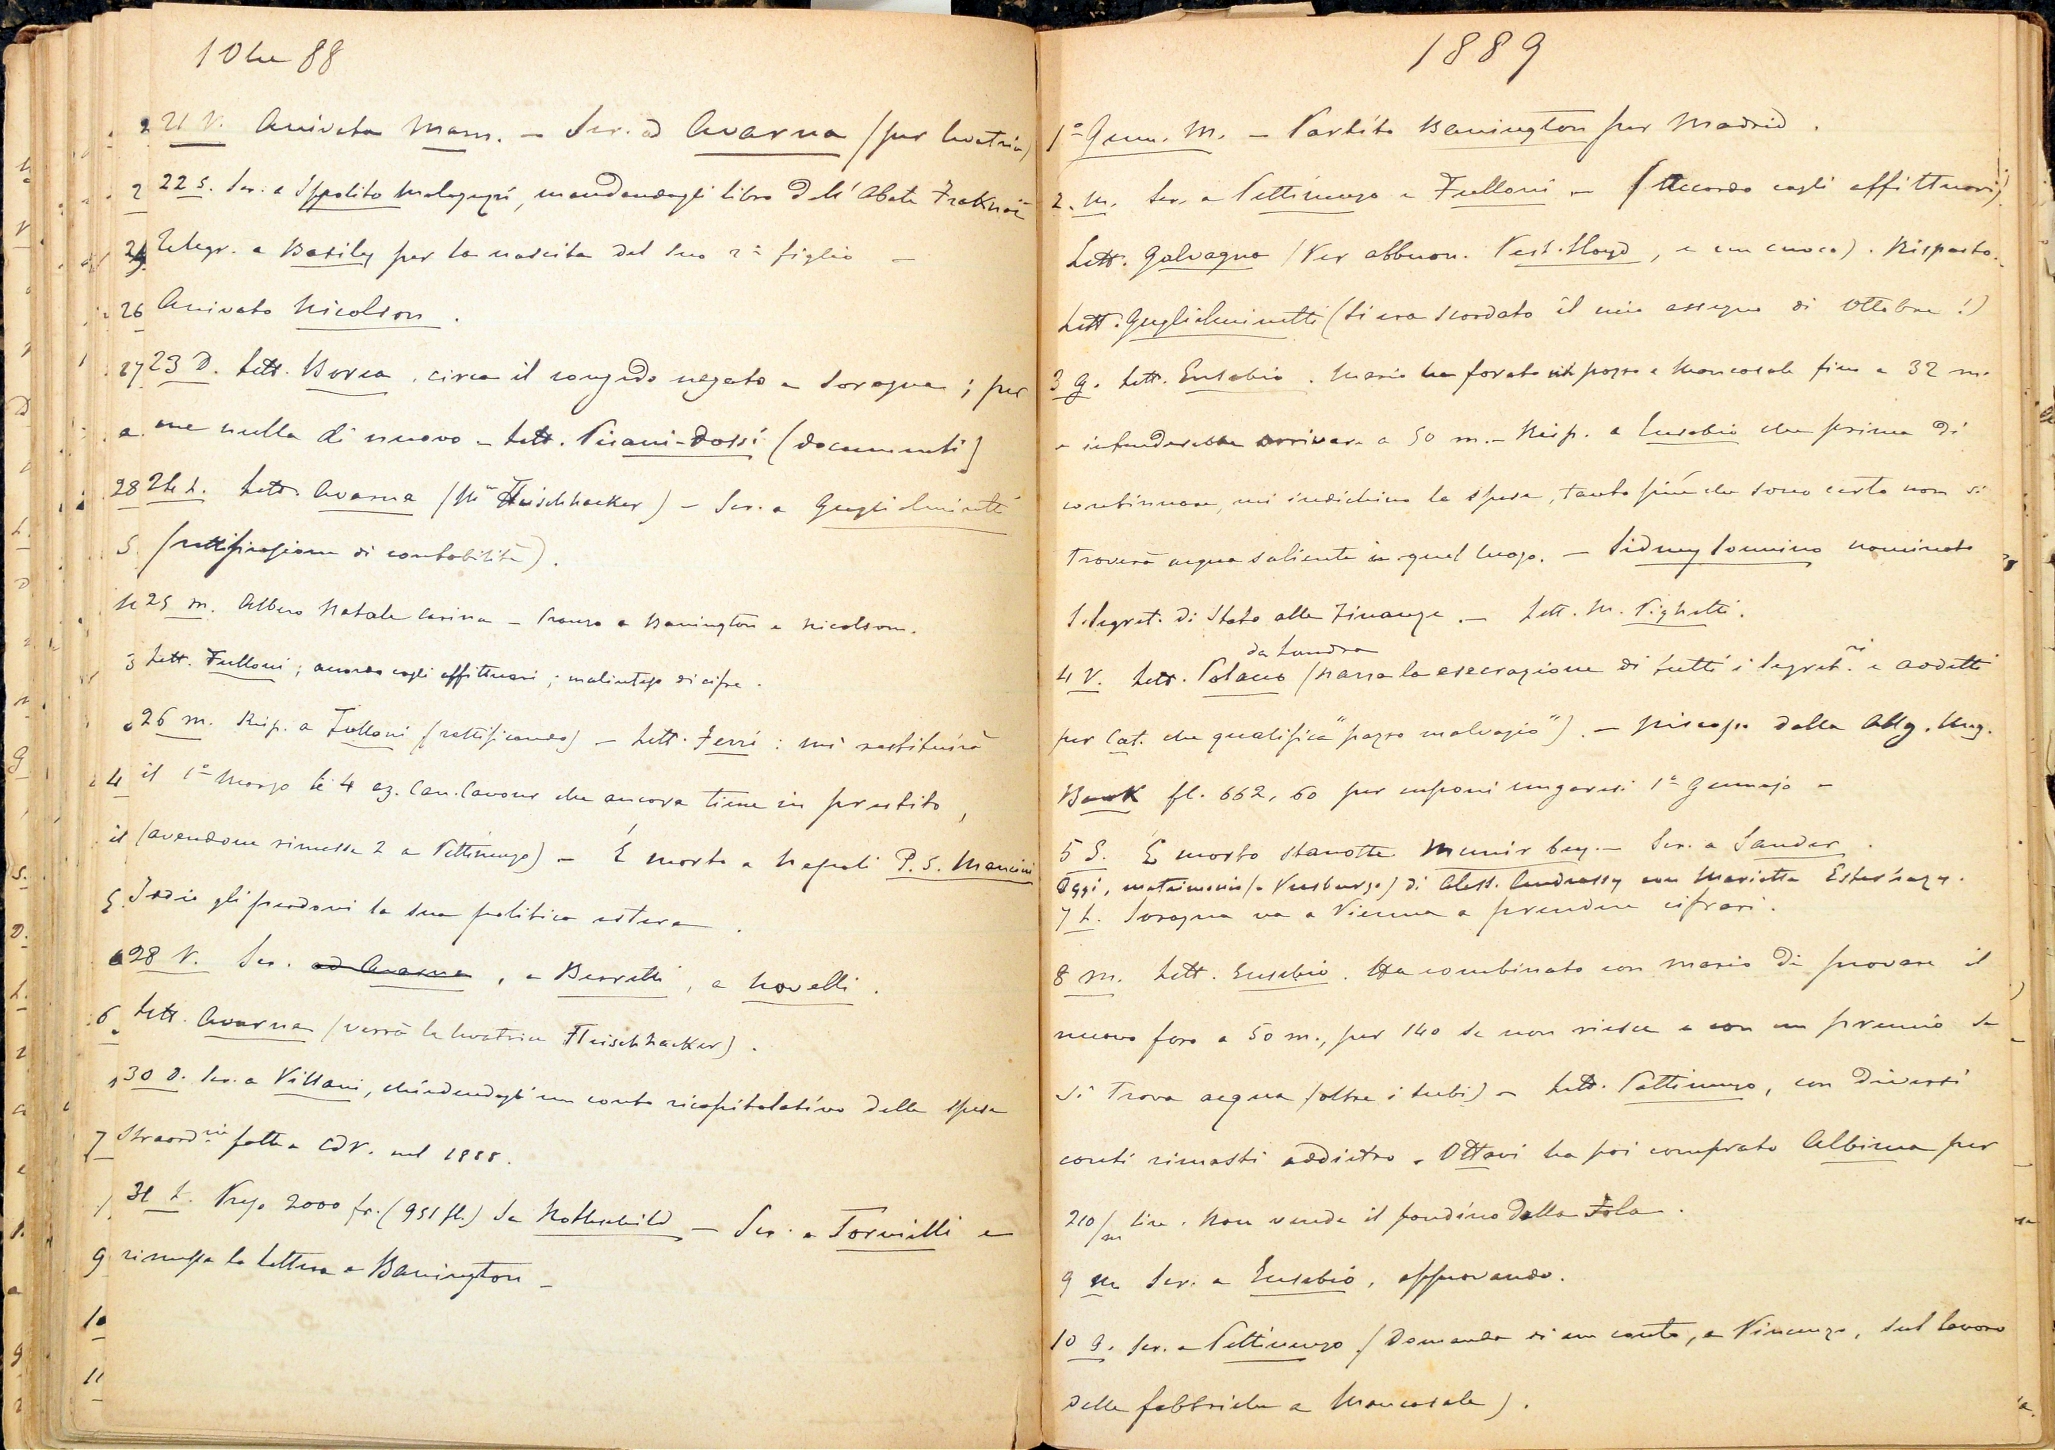 10bre 88
21 V. Arrivata Mam. – Scr. ad Avarna (per levatrice)
22 S. Scr. a Ippolito Malaguzzi, mandandogli libro dell'Abate Fraknoi
Telegr. a Basily per la nascita del suo 2° figlio –
Arrivato Nicolson.
23 D. Lett. Borea, circa il congedo negato a Soragna; per
me nulla di nuovo – Lett. Pisani-Dossi (documenti)
24 L. Lett. Avarna (Mª Fleischhacker) – Scr. a Guglielminetti
(rettificazione di contabilità).
25 M. Albero Natale – Pranzo a Barrington e Nicolson.
Lett. Fulloni; accordo cogli affittuari; malinteso di cifre.
26 M. Risp. a Fulloni (rettificando) – Lett. Ferri: mi restituirà
il 1° Marzo le 4 az. Can. Cavour che ancora tiene in prestito,
(avendone rimesse 2 a Pettinengo) – È morto a Napoli P. S. Mancini
Iddio gli perdoni la sua politica estera.
28 V. Scr. ad Avarna, a Berretti, a Novelli.
Lett. Avarna (verrà la levatrice Fleischhacker).
30 D. Scr. a Villani, chiedendogli un conto ricapitolativo delle spese
straord.rie fatte a CdV. nel 1888.
31 L. Preso 2000 fr. (951 fl.) da Rothschild – Scr. a Tornielli e
rimessa la lettera a Barrington –
1889
1° Genn. M. – Partito Barrington per Madrid.
2. M. Scr. a Pettinengo e Fulloni – (accordo cogli affittuari)
Lett. Galvagno (Per abbuon. Pest. Lloyd, e un cuoco). Risposto.
Lett. Guglielminetti (si era scordato il mio assegno di Ottobre!)
3 G. Lett. Eusebio. Mario ha forato un pozzo a Mancasale fino a 32 m.
e intenderebbe arrivare a 50 m. – Risp. a Eusebio che prima di
continuare, mi indichino la spesa, tanto più che sono certo non si
troverà acqua saliente in quel luogo. – Sidney Sonnino nominato
S. Segret. di Stato alle Finanze. – Lett. M. Pighetti.
da Londra
4 V. Lett. Polacco (narra la esecrazione di tutti i Segret.ri e addetti
per Cat. che qualifica "pazzo malvagio"). – riscosso dalla Allg. Ung.
Bank fl. 662,60 per cuponi ungaresi 1° Gennajo –
5 S. È morto stanotte Munir bey. – Scr. a Sander.
Oggi, matrimonio (a Presburgo) di Aless. Andrassy con Marietta Esterhazy.
7 L. Soragna va a Vienna a prendere cifrari.
8 M. Lett. Eusebio. Ha combinato con Mario di provare il
nuovo foro a 50 m., per 140 se non riesce e con un premio se
si trova acqua (oltre i tubi) – Lett. Pettinengo, con diversi
conti rimasti addietro. Ottavi ha poi comprato Albinea per
210/m lire. Non vende il fondino della Fola.
9 M Scr. a Eusebio, approvando.
10 G. Scr. a Pettinengo (Domanda di un conto, a Vincenzo, sul lavoro
delle fabbriche a Mancasale).